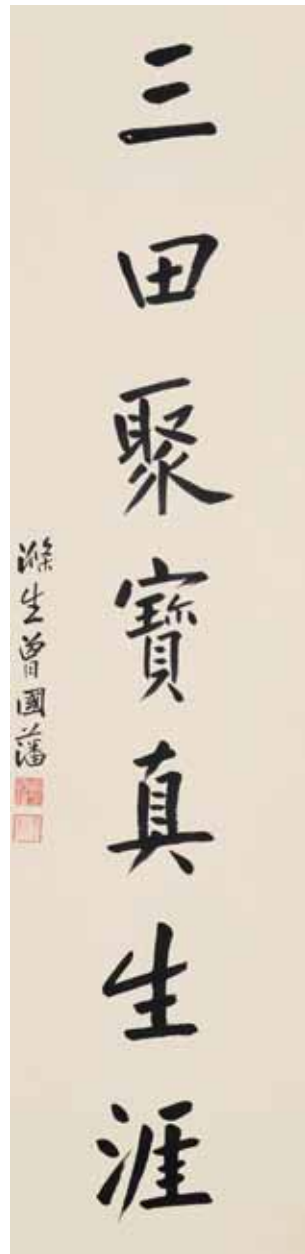 三田聚寶真生涯
滌生曾國藩